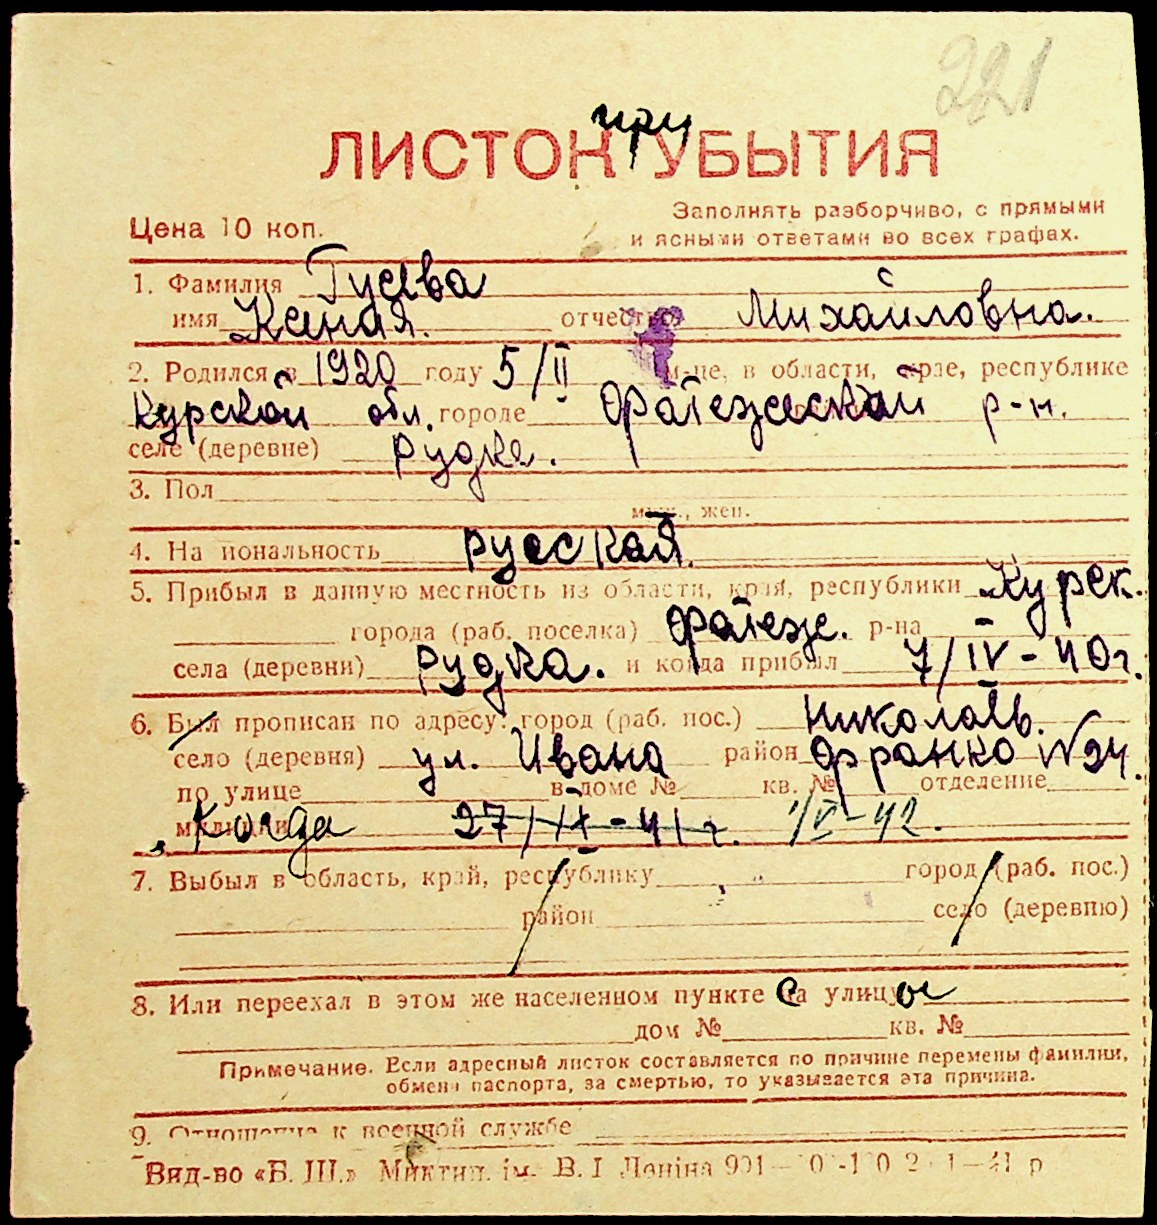 221
при
ЛИСТОК УБЫТИЯ
Цена 10 коп.
Заполнять разборчиво, с прямыми
и ясными ответами во всех графах.
1. Фамилия Гусева
имя Ксения. отчество Михайловна.
2. Родился в 1920 году 5/II м-це, в области, крае, республике
Курской обл. городе Фатежеской р-н.
селе (деревне) Рудке.
3. Пол
муж., жен.
4. Национальность русская.
5. Прибыл в данную местность из области, края, республики Курск.
города (раб. поселка) Фатеже. р-на
села (деревни) Рудка. и когда прибыл 7/IV-40г.
6. Был прописан по адресу: город (раб. пос.) Николаев.
село (деревня) ул. Ивана район Франко №24.
по улице в доме № кв. № отделение
милиции Когда 27/IX-41г. 1/V-42.
7. Выбыл в область, край, республику город (раб. пос.)
район село (деревню)
8. Или переехал в этом же населенном пункте са улицы
дом № кв. №
Примечание. Если адресный листок составляется по причине перемены фамилии,
обмена паспорта, за смертью, то указывается эта причина.
9. Отношение к военной службе
Вид-во «Б. Ш.» Миктип. ім. В. І Леніна